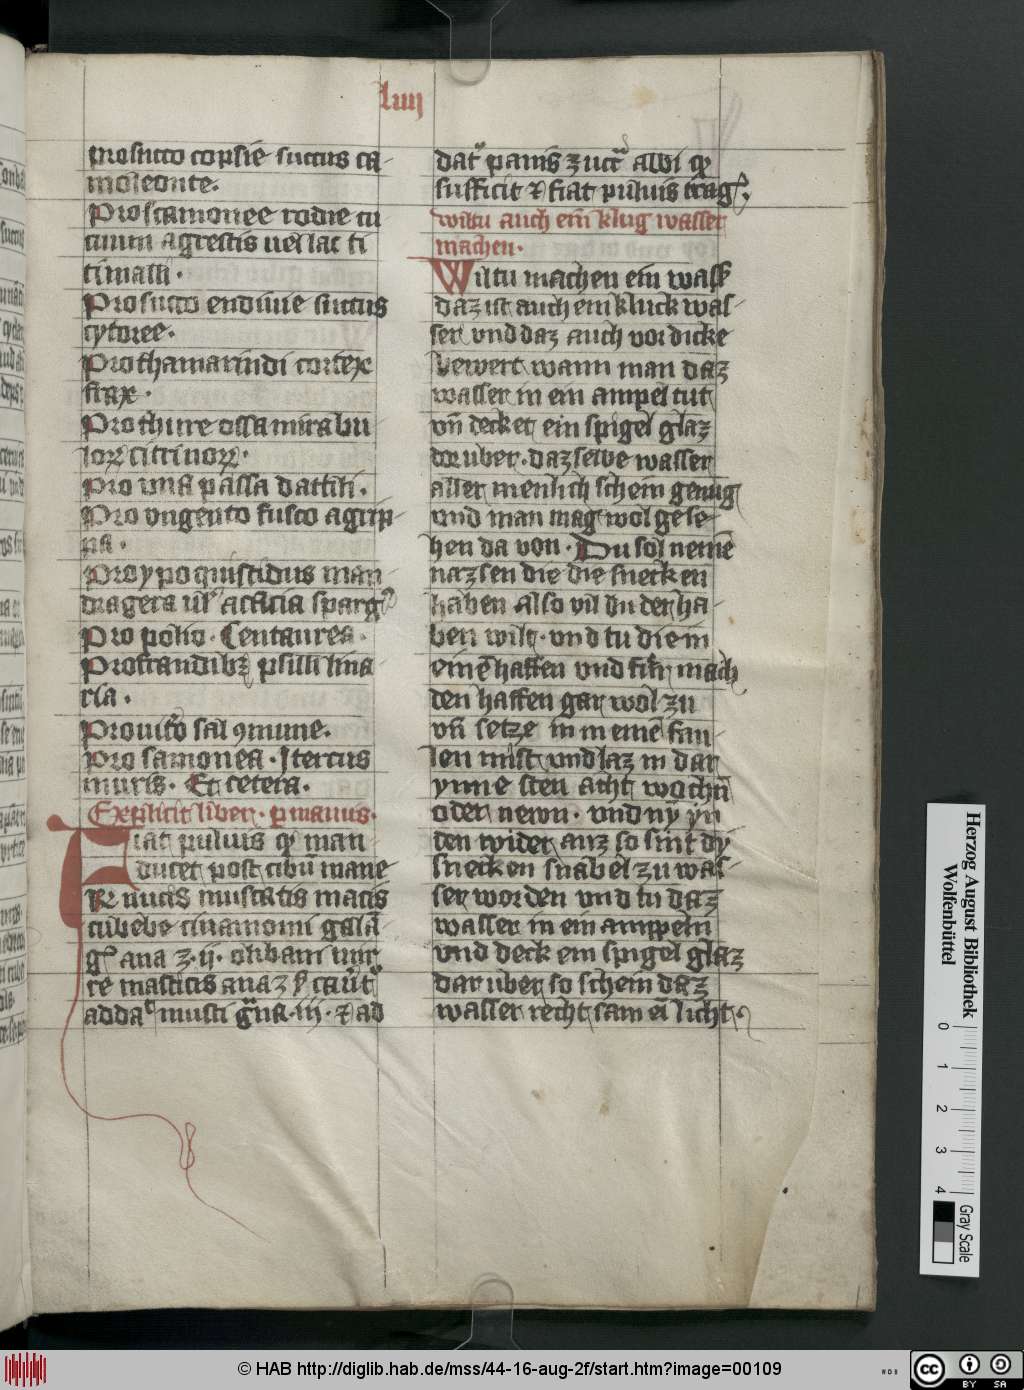 liiij
Pro succo copsie succus ca-
moleonte.
Pro scamonee rodie cu
cuum agrestis uel lac ti
timalli.
Pro succo endiuie succus
cytoree.
Pro thamarindi cortex
frax.
Pro thure ossa mirabu
loꝝ citrinoꝝ.
Pro vna passa dactili.
Pro vngento fusco agrip-
pa.
Pro ypoquistidus man
dragera ul' acacia sparg
Pro polio. Centaurea.
Pro strandibꝫ psilli lina
ria.
Pro uitro sal ꝯmune.
Pro samonea. Stercus
muris. Et cetera.
Explicit liber. pmanus.
Fiat puluis qͥ man
ducet post cibū mane
℞ nucis muscatis macis
cubebe cinamomi gala
ana ʒ. ij. olibani mir
re masticis ana ʒ
adda musci gna. iij. ⁊ ad
dat panis zuct albi
sufficit ⁊ fiat puluis trag.
wiltu auch ein klug wasser
machen.
Wiltu machen ein wass
daz ist auch ein kluck was-
ser vnd daz auch vor dicke
bewert wann man daz
wasser in ein ampel tut
vn̄ decket ein spigel glaz
dor vber. daz selbe wasser
aller menlich schein genug
vnd man mag wol gese-
hen da von. Du sol nemē
nazsen die die snecken
haben also vil du der ha-
ben wilt. vnd tu die in
einē haffen vnd mach
den haffen gar wol zu
vn̄ setze in in einē fau-
len mist vnd laz in dar
ynne sten acht wochn̄
oder newn. vnd ny yn
den wider auz so sint dy
snecken snabel zu was-
ser worden vnd tu daz
wasser in ein ampeln
vnd deck ein spigel glaz
dar vber so schein daz
wasser recht sam ei licht.
Herzog August Bibliothek
Wolfenbüttel
0 1 2 3 4
Gray Scale
© HAB http://diglib.hab.de/mss/44-16-aug-2f/start.htm?image=00109
cc BY SA